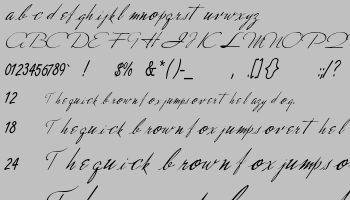 a b c d e f g h i j k l m n o p q r s t u v w x y z
A B C D E F G H I J K L M N O P Q
0123456789` ! $% &*()-_ , .[]{} :;/?
12 The quick brown fox jumps over the lazy dog.
18 The quick brown fox jumps over the l
24 The quick brown fox jumps o